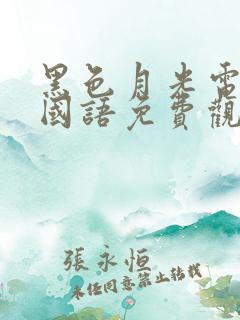 黑色月光電
國語免費觀
張永恒
未经同意禁止转载